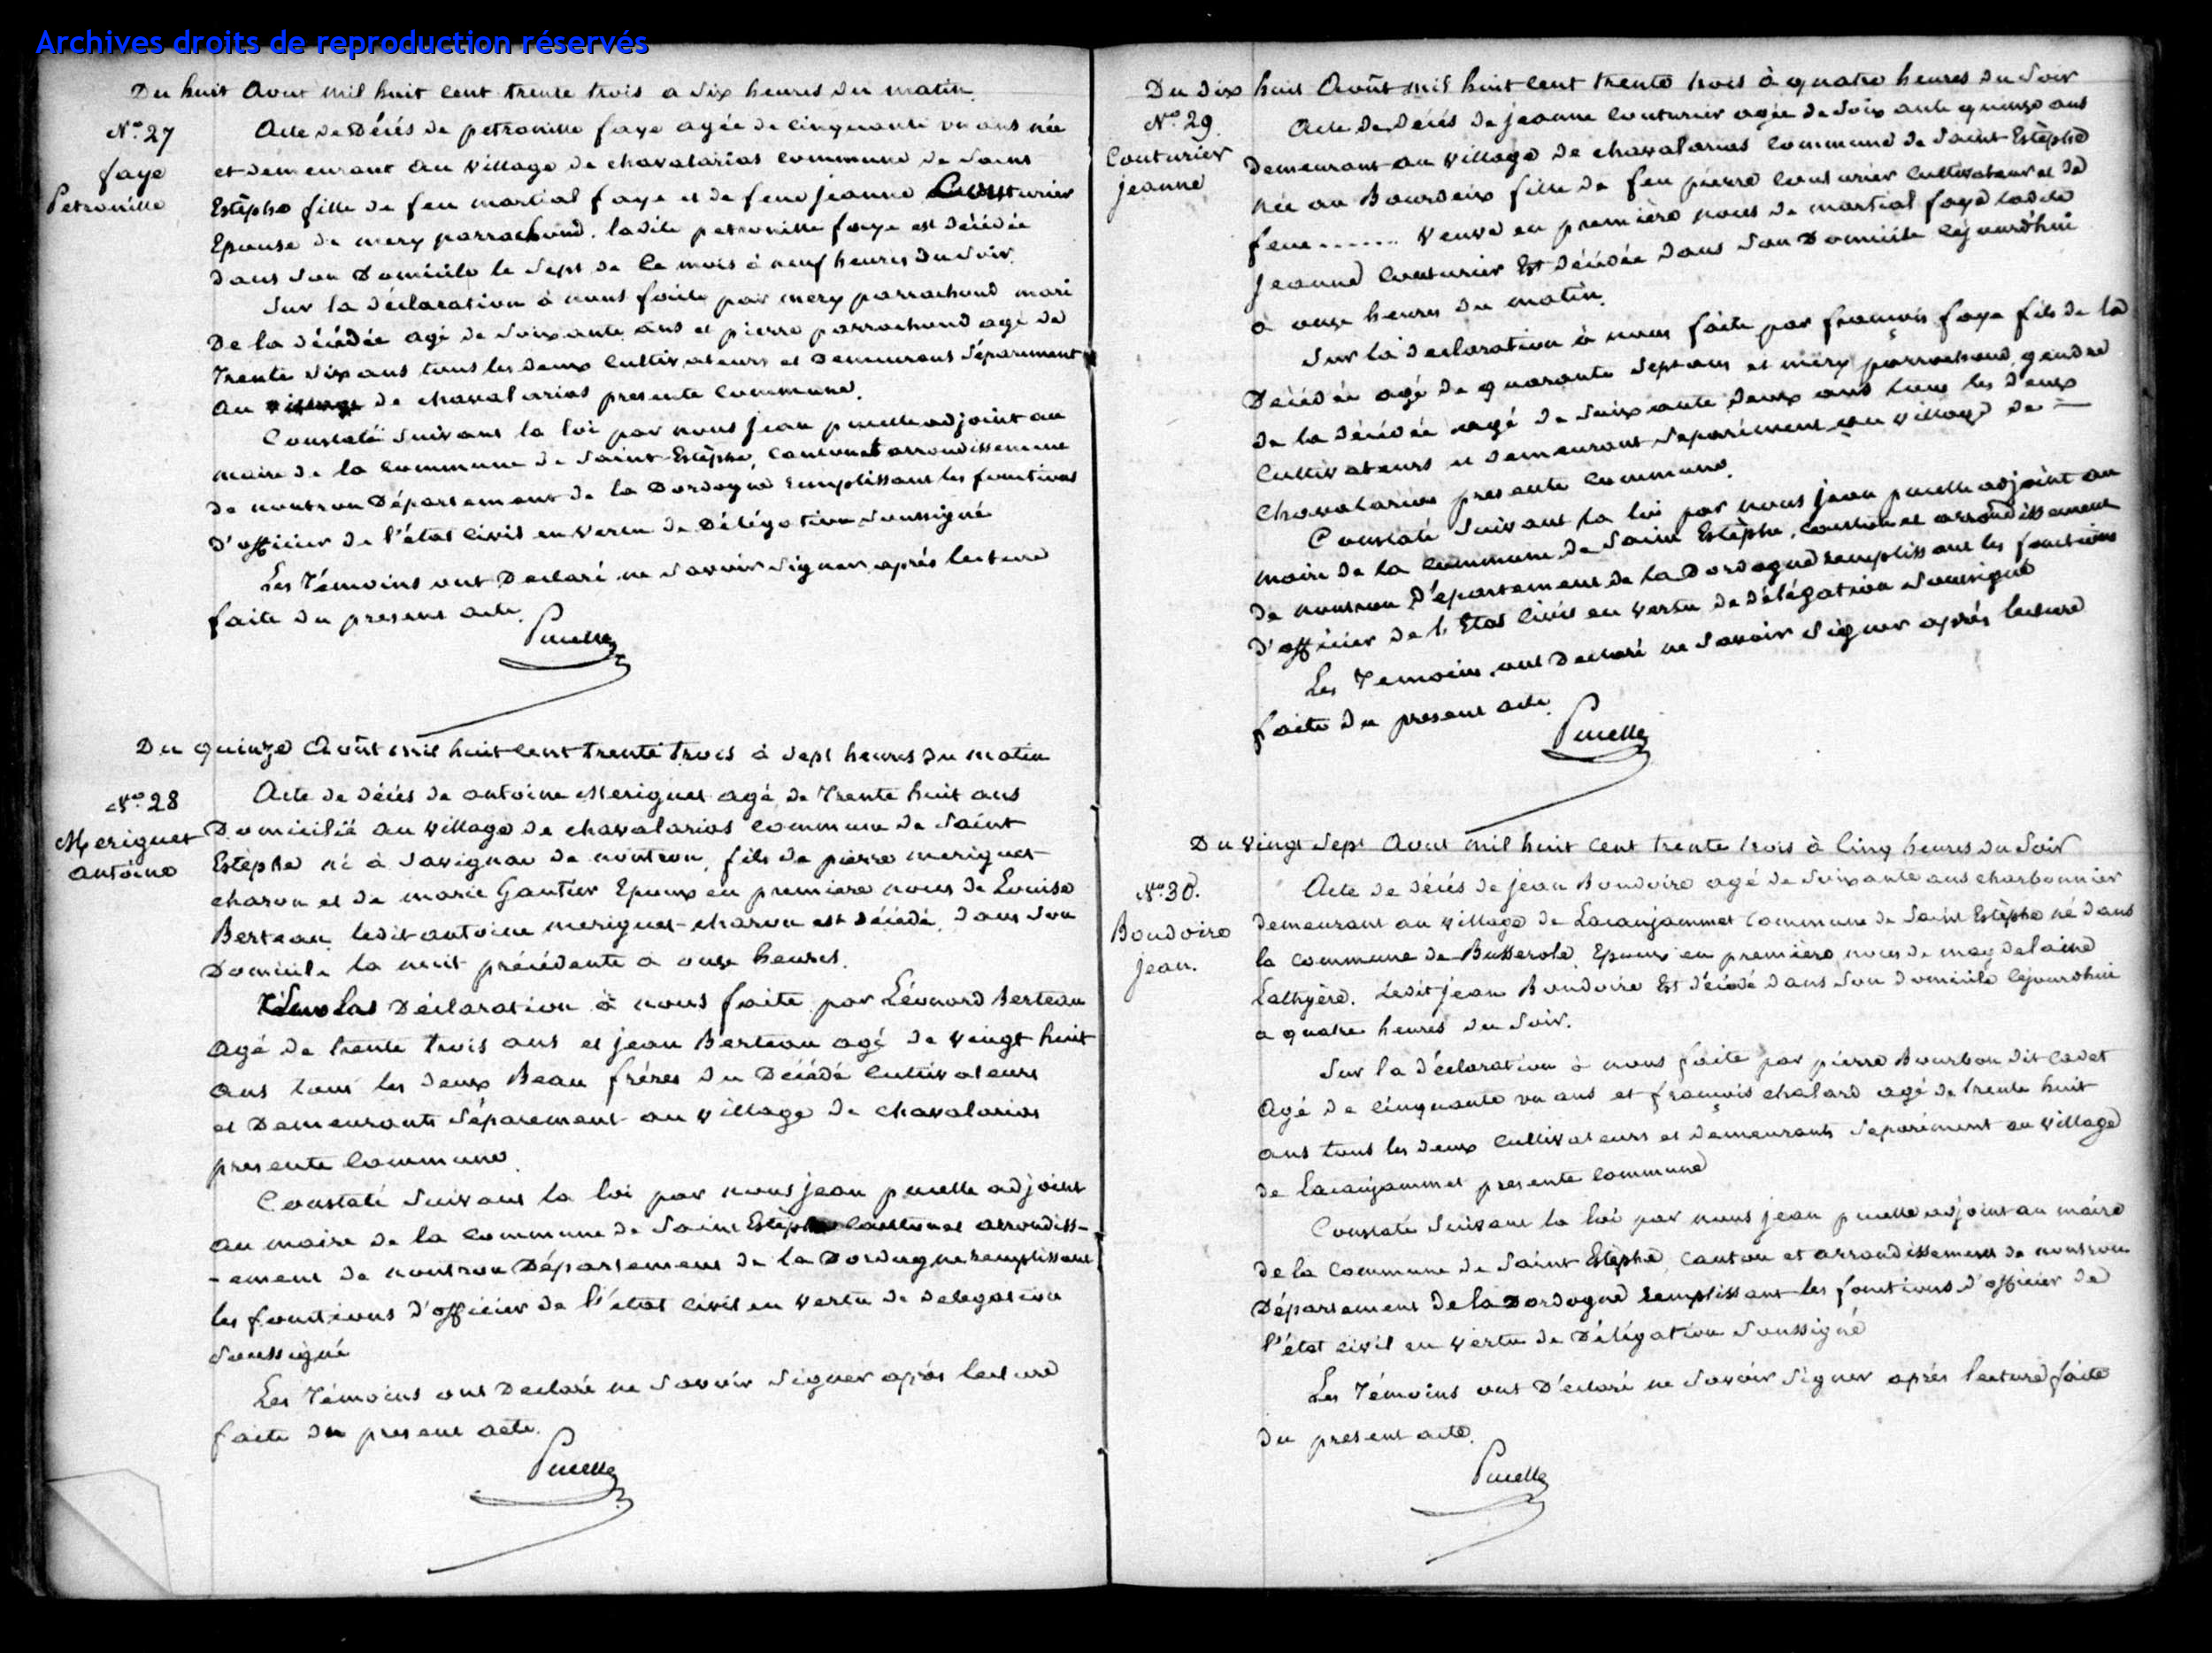 Archives droits de reproduction réservés
Du huit Avout mil huit cent trente trois a Six heures du matin
N.º 27
faye
Petronille
Acte de Décés de petronille faye agée de cinquante un ans née
et demeurant au village de chavalarias commune de Saint
Estèphe fille de feu martial faye et de feue jeanne Couturier
Epouse de mery parrachaud. ladite petronille faye est décédée
dans Son Domicile le Sept de ce mois à neuf heures du Soir.
Sur la déclaration à nous faite par mery parrachaud mari
De la décédée agé de Soixante ans et pierre parrachaud agé de
Trente Six ans tous les deux Cultivateurs et Demeurans Séparement
au village de chavalarias presente Commune.
Constaté Suivant la loi par nous jean pucelle adjoint au
maire de la commune de Saint-Estèphe, canton et arrondissement
de nontron Département de la Dordogne remplissant les fonctions
d'officier de l'état civil en vertu de Délégation Soussigné
Les Témoins ont Declaré ne Savoir Signer après lecture
faite du present acte.
Pucelle
Du quinze Avoût mil huit cent trente trois à Sept heures du matin
N.º 28
Meriguet
antoine
Acte de décés de antoine Meriguet agé de Trente huit ans
Domicilié au village de chavalarias commune de Saint
Estèphe né à Savignac de nontron, fils de pierre meriguet
charon et de marie Gautier Epoux en premiere noces de Louise
Berteau, ledit antoine meriguet-charon est décédé, dans Son
Domicile la nuit précédente a onze heures.
Sur la Déclaration à nous faite par Léonard Berteau
agé de trente trois ans et jean Berteau agé de vingt huit
ans tous les deux Beau frères du Décédé Cultivateurs
et Demeurants Séparement au village de chavalarias
presente Commune.
Constaté Suivant la loi par nous jean pucelle adjoint
au maire de la commune de Saint Estèphe canton et arrondiss-
-ement de nontron Département de la Dordogne remplissant
les fonctions d'officier de l'état civil en vertu de delegation
Soussigné
Les Témoins ont Declaré ne Savoir Signer après lecture
faite du present acte.
Pucelle
Du dix huit Avoût mil huit cent trente trois à quatre heures du Soir
N.º 29.
Couturier
jeanne
Acte de décés de jeanne Couturier agée de Soixante quinze ans
demeurant au village de chavalarias Commune de Saint-Estèphe
née au Bourdeix fille de feu pierre Couturier Cultivateur et de
feue ....... veuve en premiere noces de martial faye ladite
Jeanne Couturier Est décédée dans Son Domicile cejourdhui
à onze heures du matin.
Sur la declaration à nous faite par françois faye fils de la
Décédée agé de quarante Sept ans et mery parrachaud gendre
de la décédée agé de Soixante deux ans tous les deux
Cultivateurs et demeurant Separément au village de —
chavalarias presente Commune.
Constaté Suivant la loi par nous jean pucelle adjoint au
maire de la Commune de Saint Estèphe, canton et arrondissement
de nontron Département de la Dordogne remplissant les fonctions
d'officier de l'Etat Civil en vertu de délégation Soussigné
Les Temoins ont Declaré ne Savoir Signer après lecture
faite du present acte.
Pucelle
Du vingt Sept Avout mil huit cent trente trois à Cinq heures du Soir
N.º 30.
Boudoire
jean.
Acte de décés de jean Boudoire agé de Soixante ans charbonnier
demeurant au village de Lacaujammet Commune de Saint Estèphe né dans
la commune de Busserole, Epoux en premiere noces de magdelaine
Lathyère. Ledit jean Boudoire Est décédé dans Son domicile cejourdhui
a quatre heures du Soir.
Sur la déclaration à nous faite par pierre Bourbon dit cadet
Agé de cinquante un ans et françois chalard agé de trente huit
ans tous les deux Cultivateurs et demeurants Separément au village
de Lacaujammet presente commune
Constaté Suivant la loi par nous jean pucelle adjoint au maire
de la Commune de Saint Estèphe, canton et arrondissement de nontron
Département de la Dordogne remplissant les fonctions d'officier de
l'état civil en vertu de Délégation Soussigné
Les Témoins ont Déclaré ne Savoir Signer après lecture faite
du present acte.
Pucelle